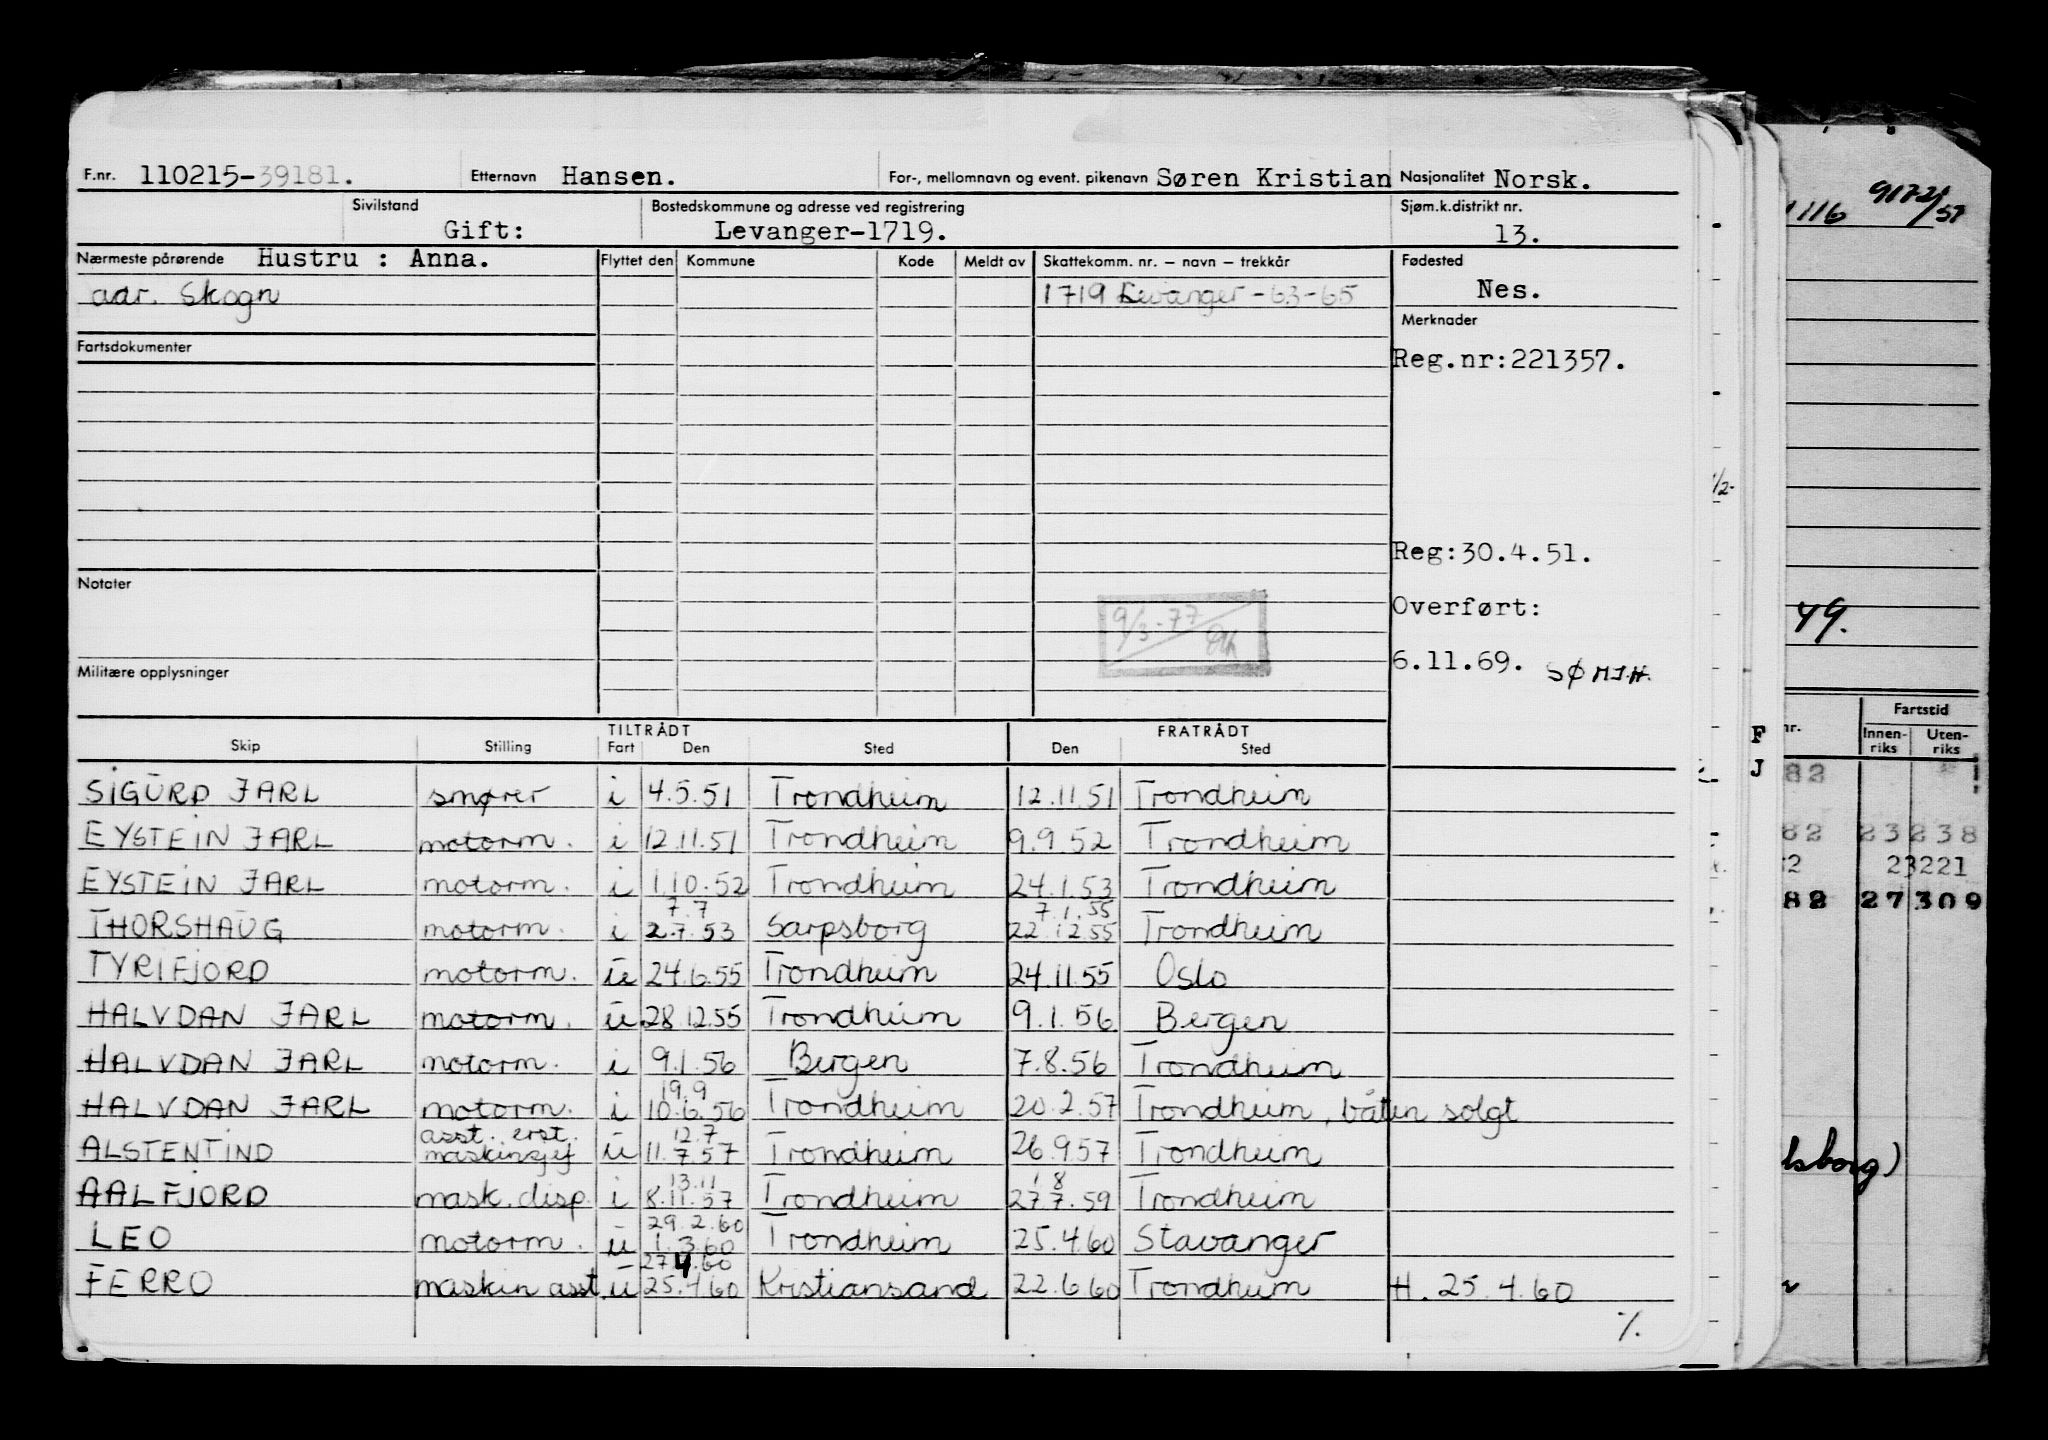 F.nr. 110215-39181. Etternavn Hansen. For-, mellomnavn og event. pikenavn Søren Kristian Nasjonalitet Norsk.
Sivilstand Gift: Bostedskommune og adresse ved registrering Levanger-1719. Sjøm.k.distrikt nr. 13.
Nærmeste pårørende Hustru : Anna. Flyttet den Kommune Kode Meldt av Skattekomm. nr. – navn – trekkår Fødested
adr. Skogn 1719 Levanger - 63 - 65 Nes.
Merknader
Fartsdokumenter Reg.nr:221357.
Reg:30.4.51.
Notater
9/3-77
Overført:
Militære opplysninger 6.11.69. SØ MJH.
TILTRÅDT FRATRÅDT
Skip Stilling Fart Den Sted Den Sted
SIGURD JARL smører i 4.5.51 Trondheim 12.11.51 Trondheim
EYSTEIN JARL motorm. i 12.11.51 Trondheim 9.9.52 Trondheim
EYSTEIN JARL motorm. i 1.10.52 Trondheim 24.1.53 Trondheim
7.7 7.1.55
THORSHAUG motorm. i 2.7.53 Sarpsborg 22.12.55 Trondheim
TYRIFJORD motorm. u 24.6.55 Trondheim 24.11.55 Oslo
HALVDAN JARL motorm. u 28.12.55 Trondheim 9.1.56 Bergen
HALVDAN JARL motorm. i 9.1.56 Bergen 7.8.56 Trondheim
19.9
HALVDAN JARL motorm. i 10.6.56 Trondheim 20.2.57 Trondheim, båten solgt
asst. erst. 12.7
ALSTENTIND maskinsjef u 11.7.57 Trondheim 26.9.57 Trondheim
13.11 1 8
AALFJORD mask. disp. i 8.11.57 Trondheim 27.7.59 Trondheim
29.2.60
LEO motorm. u 1.3.60 Trondheim 25.4.60 Stavanger
27.4.60
FERRO maskin asst. u 25.4.60 Kristiansand 22.6.60 Trondheim H. 25.4.60
%.
1116 9172/57
1/2-
49.
F
J
nr. Fartstid
Innen-riks Uten-riks
82
82 23 238
2 23221
82 27 309